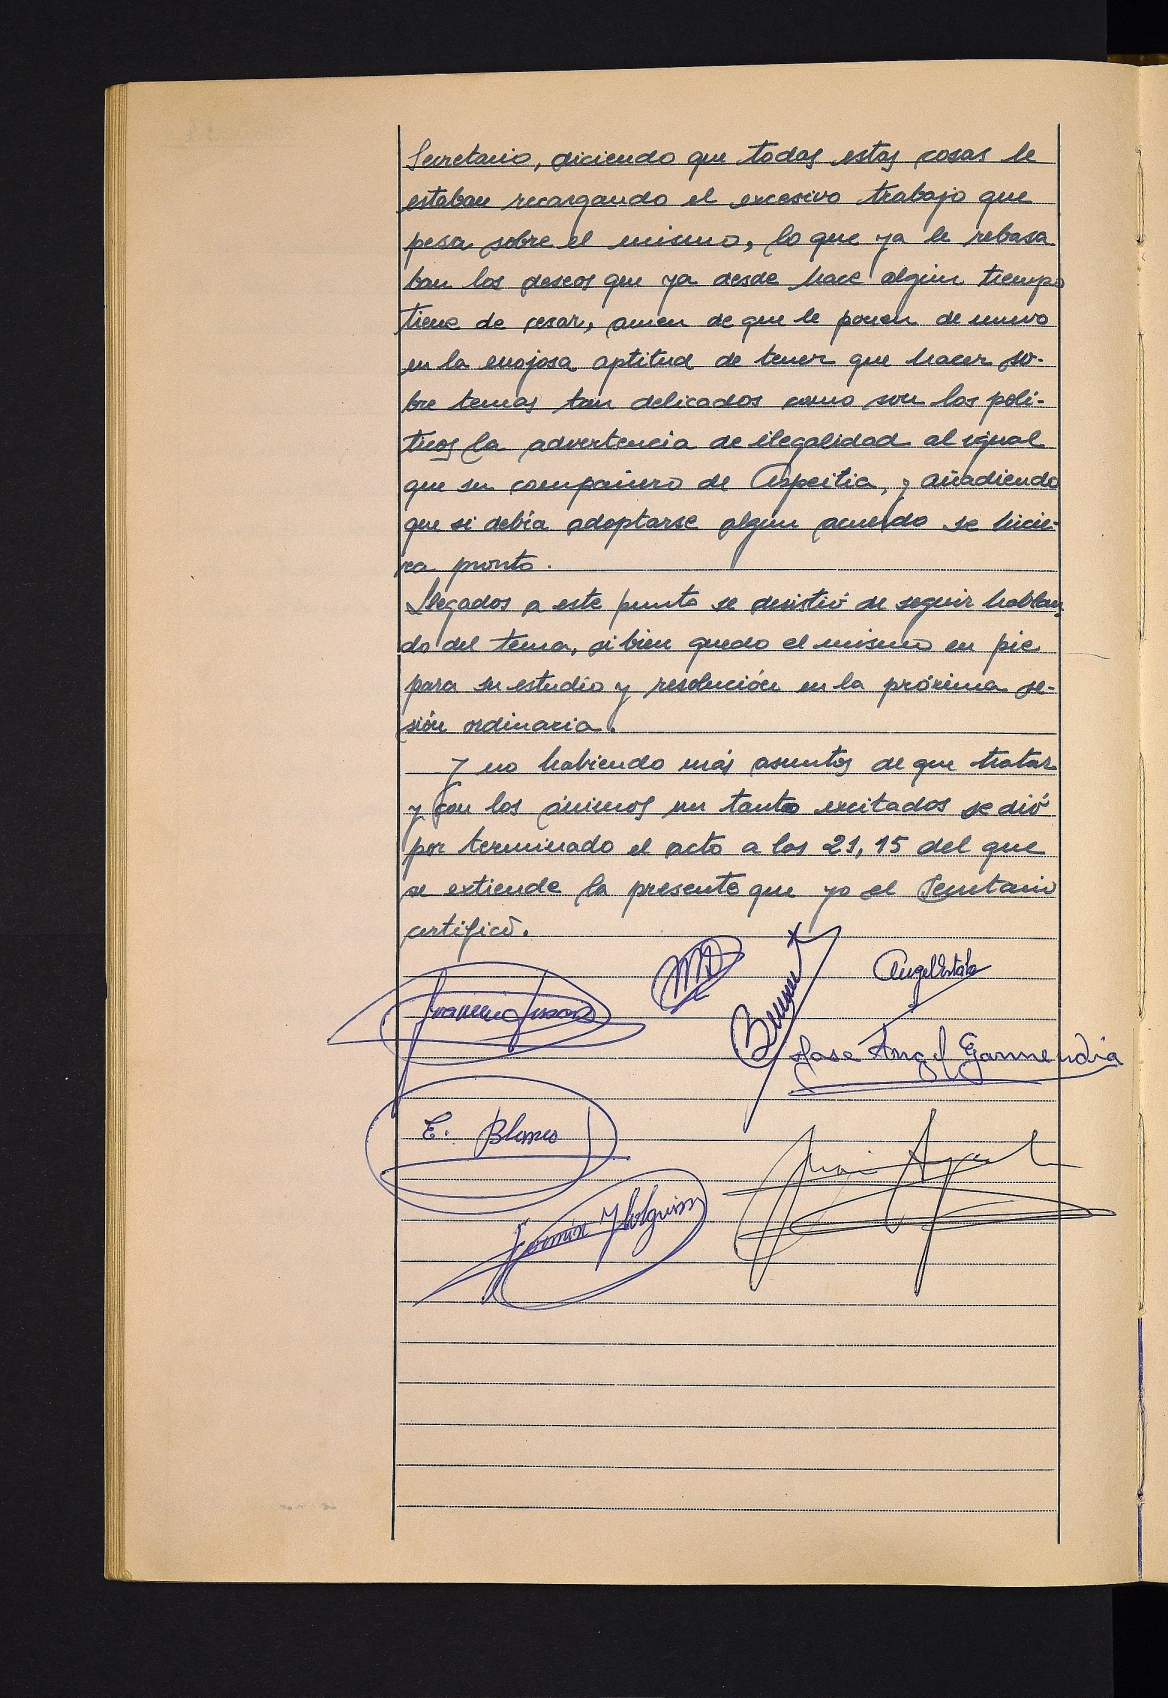 Secretario, diciendo que todas estas cosas le
estaban recargando el excesivo trabajo que
pesa sobre el mismo, lo que ya le rebasa
ban los deseos que ya desde hace algún tiempo
tiene de cesar, amen de que le ponen de nuevo
en la enojosa aptitud de tener que hacer so-
bre temas tan delicados como son los polí-
ticos la advertencia de ilegalidad al igual
que su compañero de Azpeitia, y añadiendo
que si debía adoptarse algun acuerdo se hicie-
ra pronto.
Llegados a este punto se desistió de seguir hablan-
do del tema, si bien quedo el mismo en pie
para su estudio y resolución en la próxima se-
sión ordinaria.
Y no habiendo más asuntos de que tratar
y con los ánimos un tanto excitados se dió
por terminado el acto a las 21,15 del que
se extiende la presente que yo el Secretario
certifico.
Angel
Jose Angel Garmendia
E. Blanco
Fermín Holguin